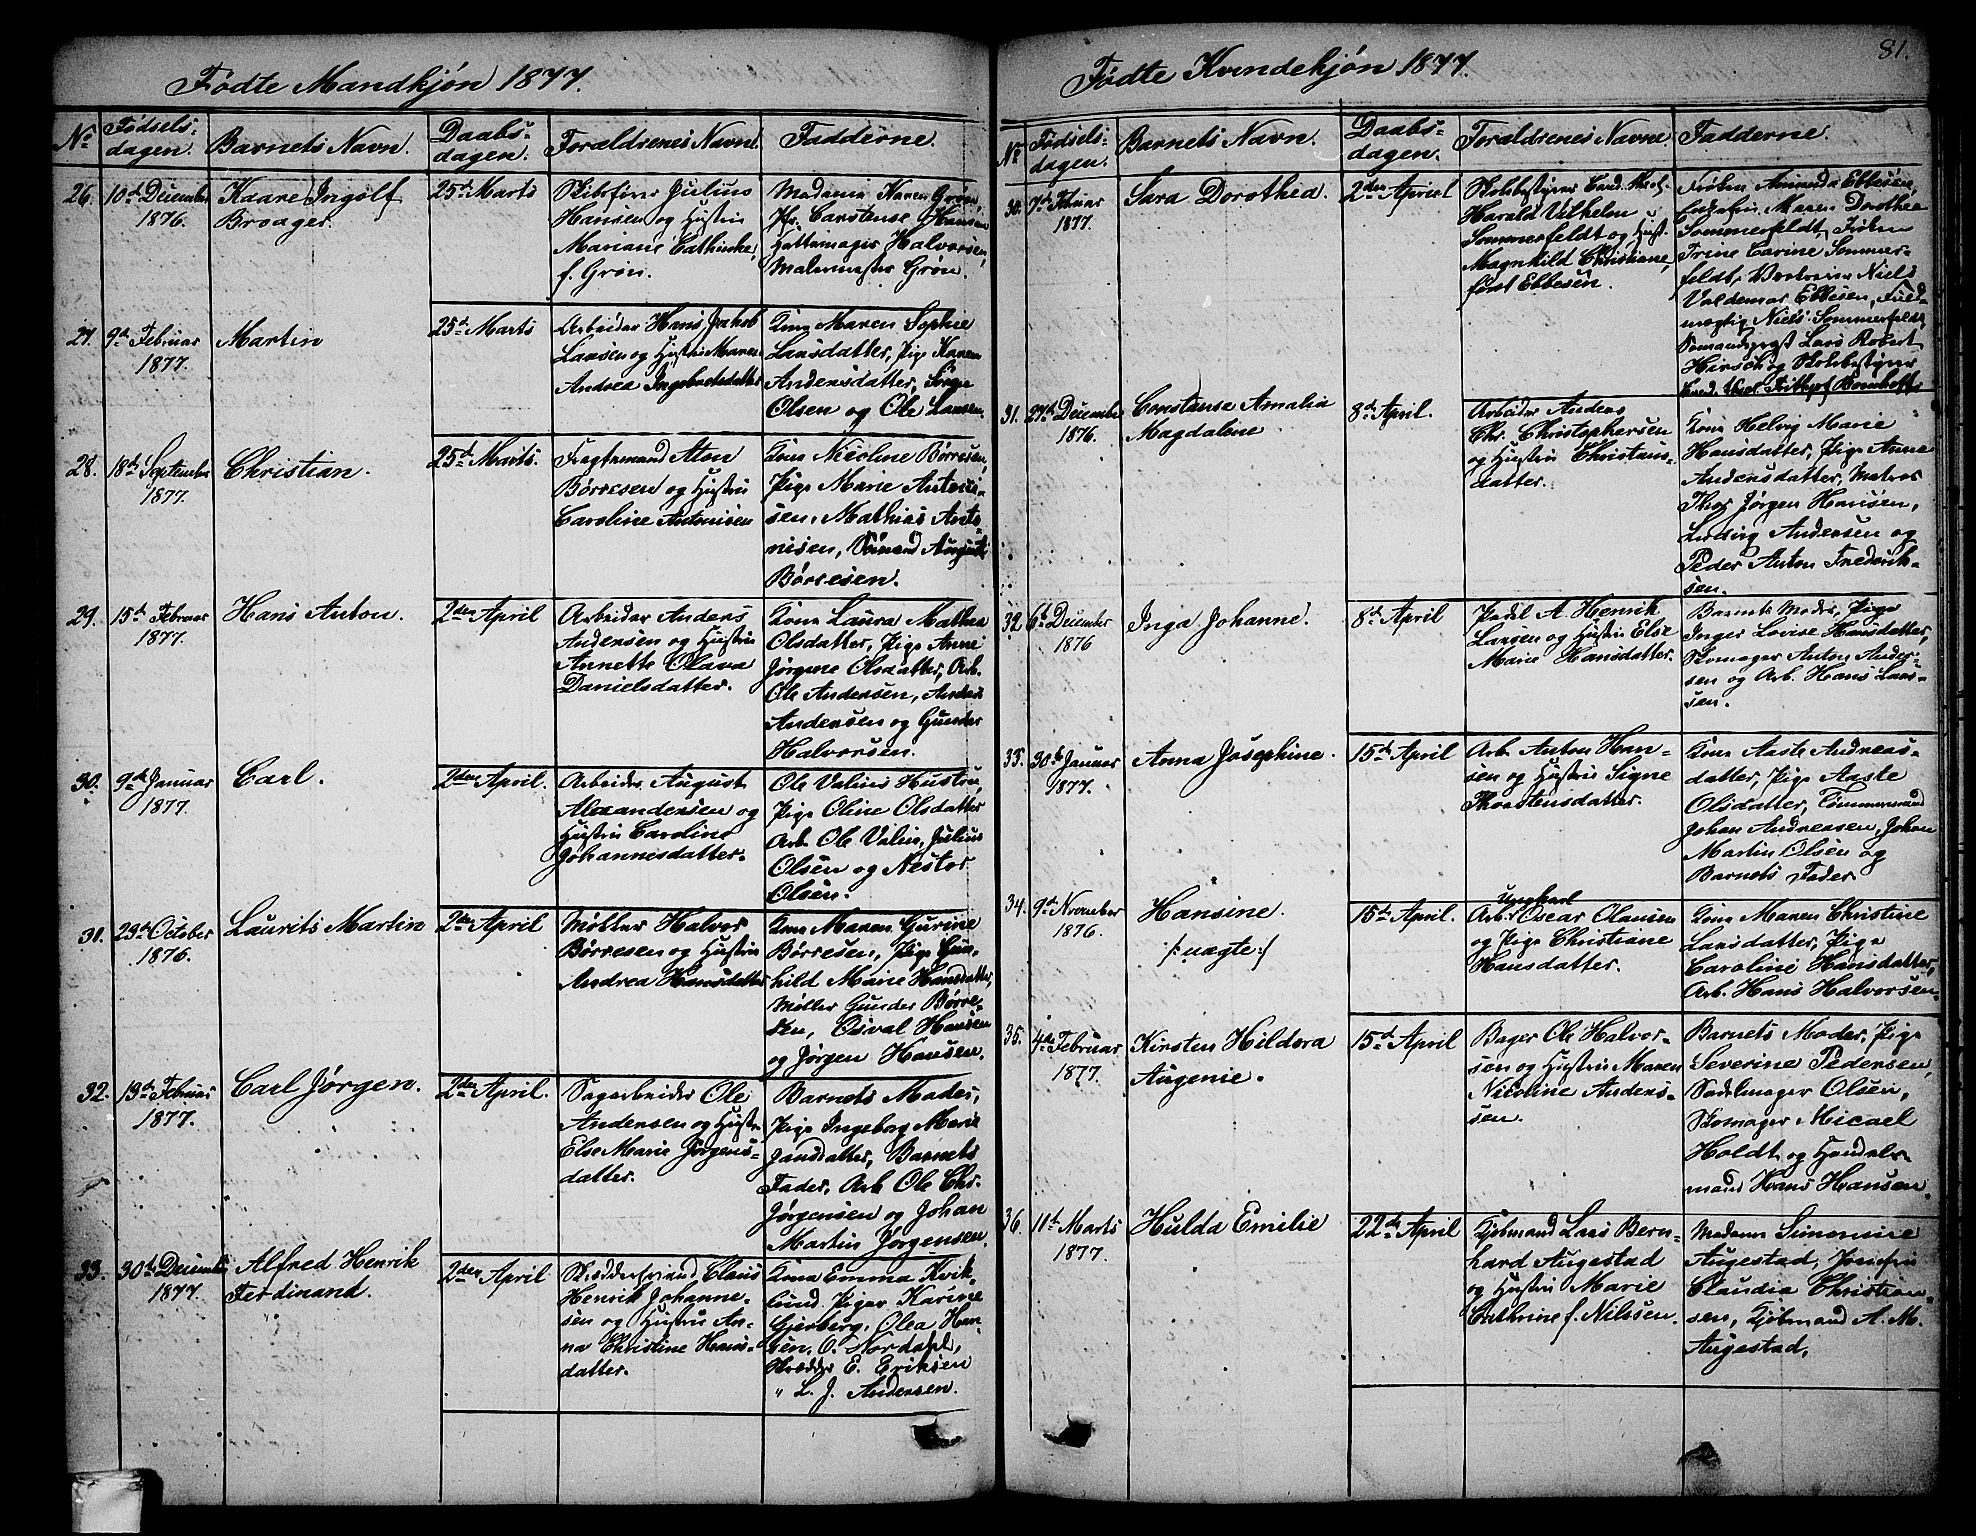 Fødte Mandkjøn 1877.
No
Fødsels-
dagen.
Barnets Navn.
Daabs-
dagen.
Forældrenes Navne
Fadderne.
26.
10de December
1876.
Kaare Ingolf
Broager.
25de Marts
Skibsfører Julius
Hansen og Hustru
Mariane Cathinke,
f. Grøn.
Madame Karen Grøn,
Constense Hansen
Hattemager Halvorsen,
Malermester Grøn.
27.
9de Februar
1877.
Martin
25de Marts
Arbeider Hans Jakob
Larsen og Hustru Maren
Andrea Ingebretsdatter
Kone Maren Sophie
Larsdatter, Pige Karen
Andersdatter,
Olsen og Ole Larsen.
28.
18de September
1877.
Christian.
25de Marts.
Fragtemand Aton
Børresen og Hustru
Caroline Antonisen
Kone Nicoline Børresen,
Pige Marie Antoni-
sen, Mathias Anto-
nisen, Sømand August
Børresen.
29.
15de Februar
1877.
Hans Anton.
2den April
Arbeider Anders
Andersen og Hustru
Annette Olava
Danielsdatter.
Kone Laura Mathea
Olsdatter, Pige Anne
Jørgine Olsdatter, Arb.
Ole Andersen, Anders
Andersen og Gunder
Halvorsen.
30.
9de Januar
1877.
Carl.
2den April.
Arbeider August
Alexandersen og
Hustru Caroline
Johannesdatter.
Ole Valius Hustru,
Pige Oline Olsdatter
Arb. Ole Valius, Julius
Olsen og Nestor
Olsen.
31.
23de October
1876.
Laurits Martin
2den April
Møller Halvor
Børresen og Hustru
Andrea Hansdatter
Kone Maren Gurine
Børresen, Pige Gun-
hild Marie Hansdatter,
Møller Gunder Børre-
sen, Osval Hansen
og Jørgen Hansen.
32.
13de Februar
1877.
Carl Jørgen.
2den April.
Sagarbeider Ole
Andersen og Hustru
Else Marie Jørgens-
datter.
Barnets Moder,
Pige Ingeborg Marie
Jansdatter, Barnets
Fader, Arb. Ole Chr.
Jørgensen og Johan
Martin Jørgensen.
33.
30de December
1877.
Alfred Henrik
Ferdinand.
2den April
Skræddersvend Claus
Henrik Johanne-
sen og Hustru An-
na Christine Hans-
datter.
Kone Emma Kvik-
lund. Piger Karine
Gjerberg, Olea Han-
sen, O. Nordahl,
Skrædder E. Eriksen
" L. J. Andersen.
Fødte Kvindekjøn 1877.
81.
No
Fødsels-
dagen.
Barnets Navn.
Daabs-
dagen.
Forældrenes Navne
Fadderne.
30.
7de Februar
1877.
Sara Dorothea.
2den April
Skolebestyrer Cand. theol.
Harald Vilhelm
Sommerfeldt og Hust.
Magnhild Christiane,
født Ebbesen.
Frøken Amanda Ebbesen,
Maren Dorothea
Sommerfeldt, Frøken
Trine Carine Sommer-
feldt, Niels
Valdemar Ebbesen, Fuld-
mægtig Niels Sommerfeldt
Lars Robert
Hirsch og Skolebestyrer
Cand. theol. Frithjof Bomhoff
31.
27de December
1876.
Constanse Amalia
Magdalene.
8de April.
Arbeider Anders
Chr. Christophersen
og Hustru Christians-
datter.
Kone Helvig Marie
Hansdatter, Pige Anne
Andersdatter, Matros
Thor Jørgen Hansen,
Ludvig Andersen og
Peder Anton Frederik-
sen.
32
6te December
1876
Inga Johanne.
8de April
A. Henrik
Larsen og Hustru Else
Marie Hansdatter.
Barnets Moder, Pige
Inger Lovise Hansdatter,
Skomager Anton Ander-
sen og Arb. Hans Lars-
sen.
33.
30te Januar
1877.
Anna Josephine.
15de April
Arb. Anton Han-
sen og Hustru Signe
Thorstensdatter.
Kone Aaste Andreas-
datter, Pige Aaste
Olsdatter, Tømmermand
Johan Andreasen, Johan
Martin Olsen og
Barnets Fader
34.
9de November
1876.
Hansine.
/: uægte :/
15de April.
Ungkarl
Arb. Oscar Olausen
og Pige Christiane
Hansdatter.
Kone Maren Christine
Larsdatter, Pige
Caroline Hansdatter,
Arb. Hans Halvorsen.
35.
4de Februar
1877.
Kirsten Hildora
Augenie.
15de April
Bager Ole Halvor-
sen og Hustru Maren
Nicoline Anders-
sen.
Barnets Moder, Pige
Severine Pedersen,
Sadelmager Olsen,
Skomager Micael
Holdt og Handels-
mand Hans Hansen.
36.
11te Marts
1877.
Hulda Emilie
22de April
Kjøbmand Lars Bern-
hard Augestad
og Hustru Marie
Cathrine f. Nilssen.
Madame Simonine
Augestad, Jomfru
Claudia Christian-
sen, Kjøbmand A. M.
Augestad.